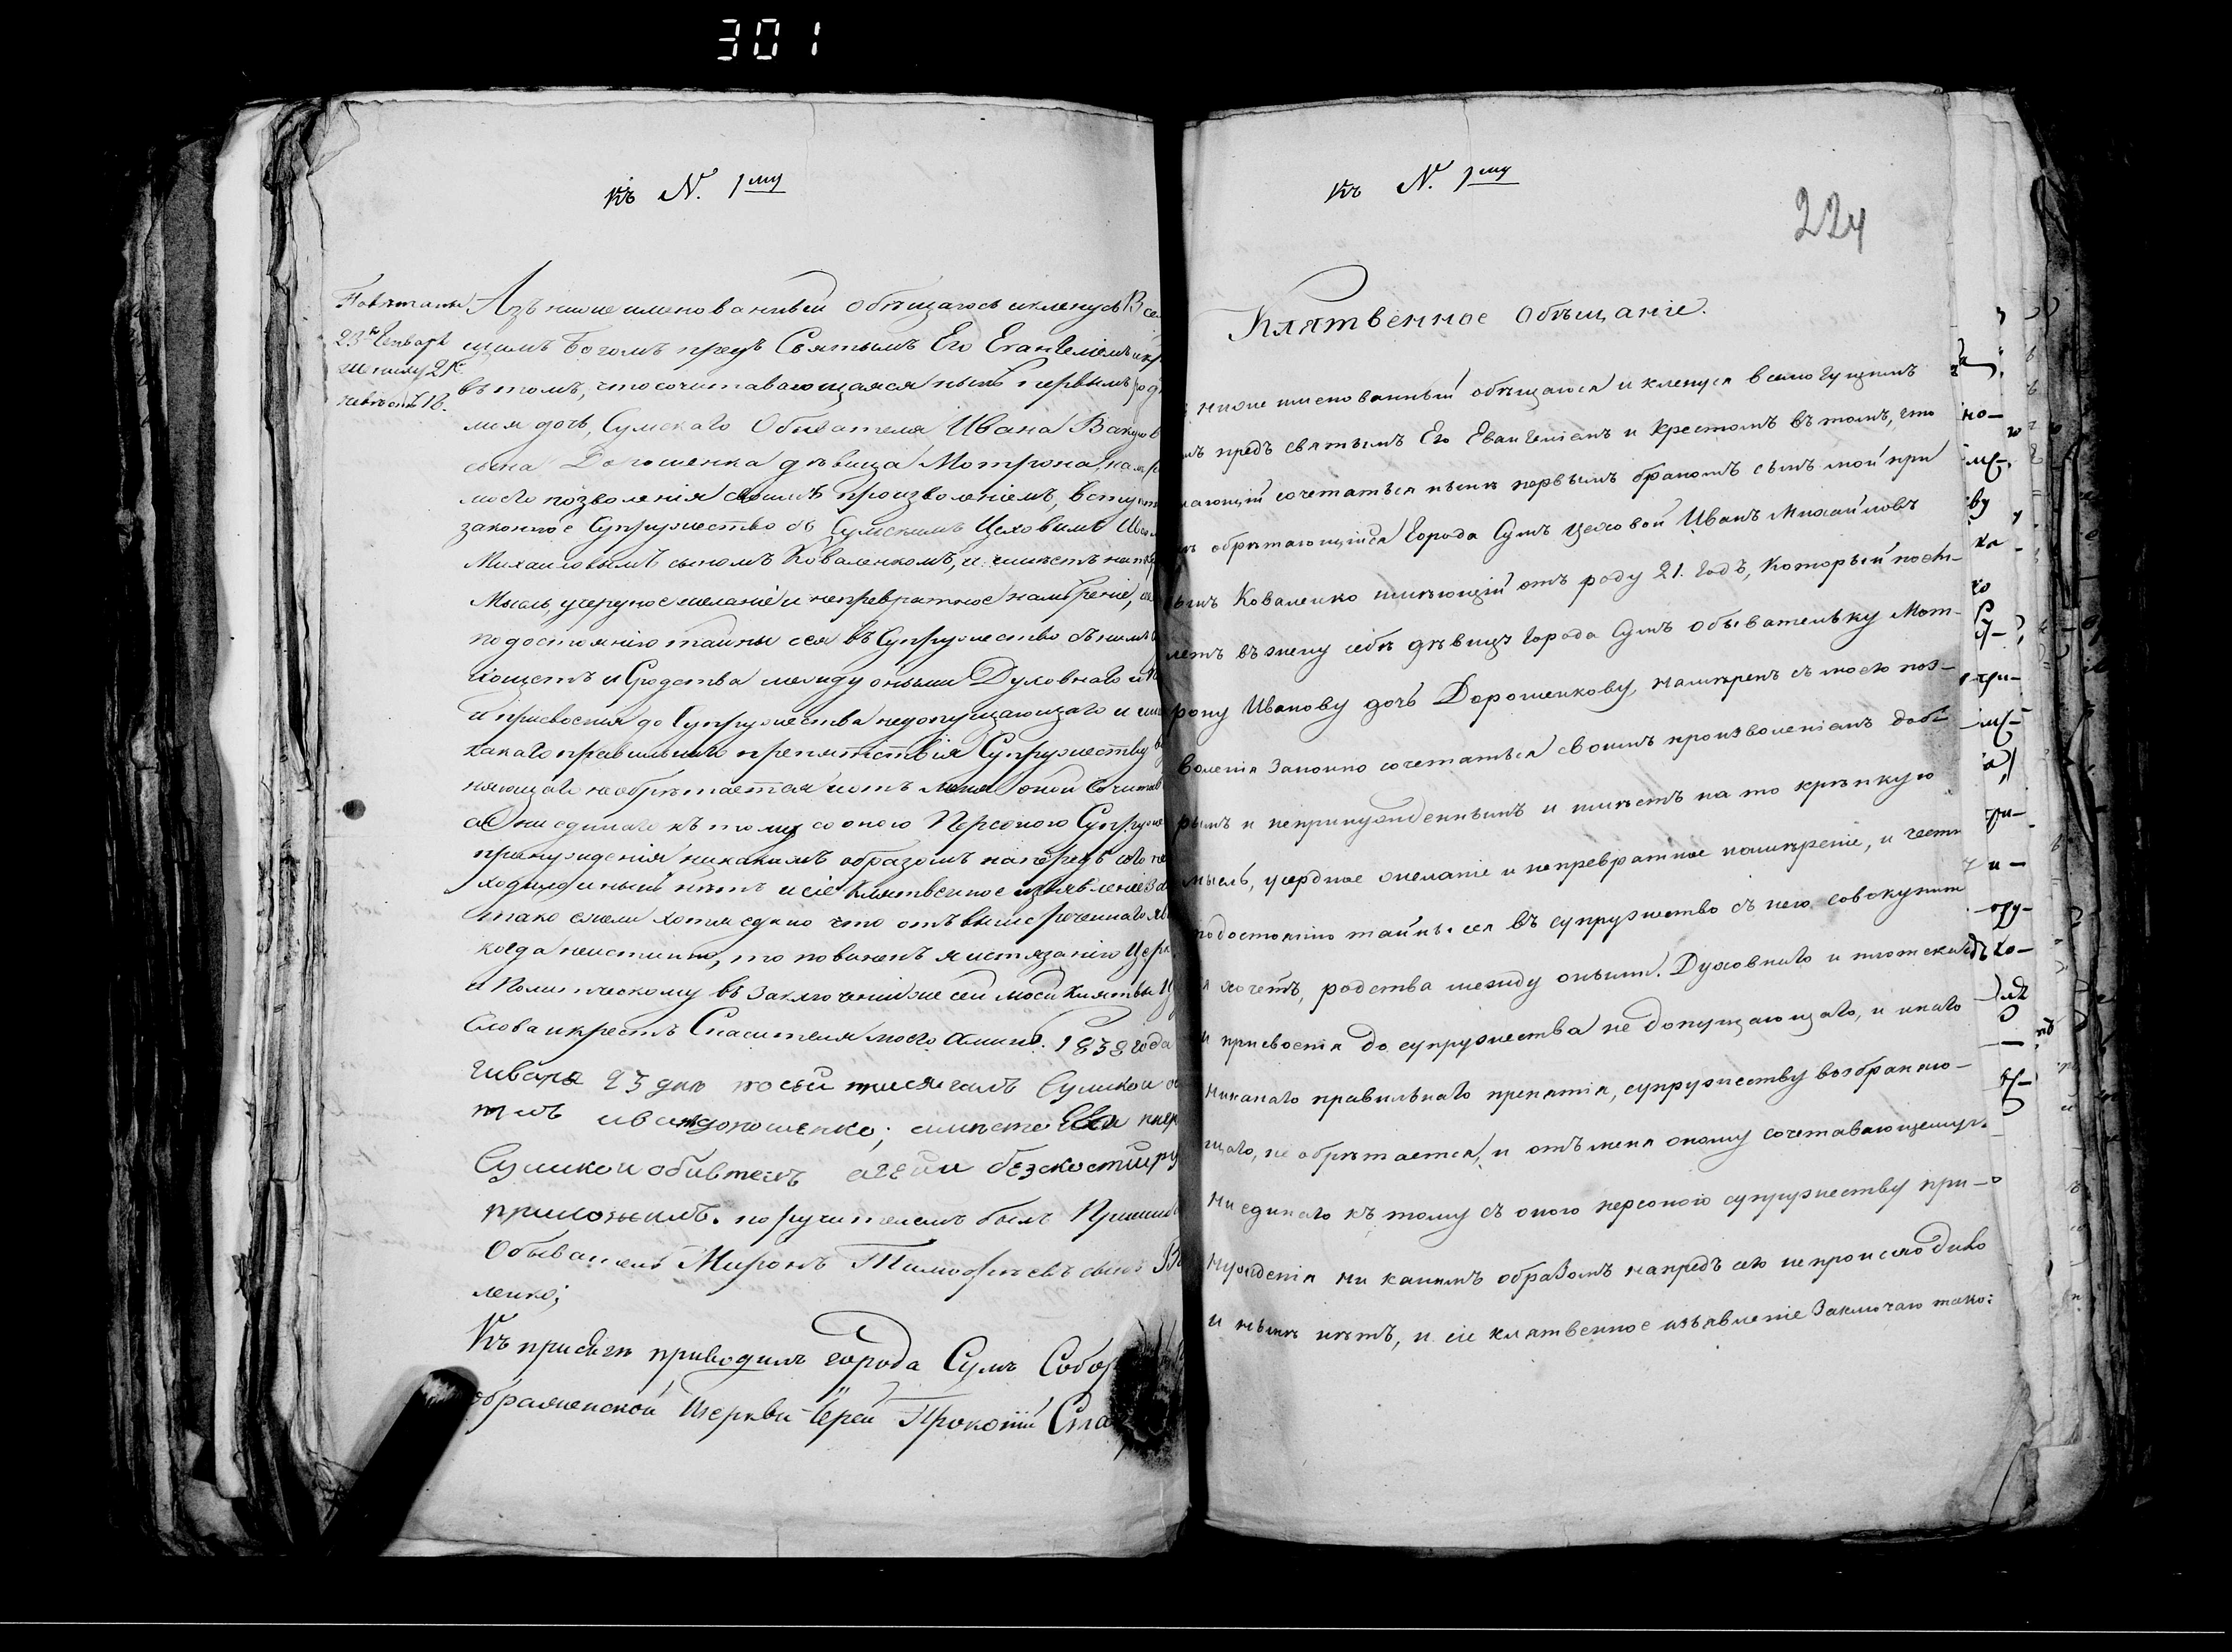 301
къ N. 1му
Повѣнчаны
23го Генваря
жениху 21
невѣстѣ 18.
Азъ нижеименованный обѣщаюсь и кленусь Все
щимъ Богомъ предъ Святымъ Его Евангеліемъ и кр
въ томъ, что сочитавающаяся нынѣ первымъ
дочь, Сумскаго Обывателя Ивана
сына Дорошенка дѣвица Мотрона,
моего позволенія своимъ произволеніемъ, вступит
законное Супружество съ Сумскимъ Цеховымъ Ива
Михайловымъ сыномъ Коваленкомъ, и имѣетъ на то кр
Мысль, усердное желаніе и непревратное намѣреніе,
по достоянію тайны сея въ Супружество съ нимъ
хощетъ и Сродства между оными Духовнаго и
и присвоенія до Супружества недопущающаго и
какаго правильнаго препятствія Супружеству
няющаго необрѣтается и отъ меня оной Сочитав
ни единаго къ тому со оною Персоною Супруже
принужденія никакимъ образомъ напередъ сего не
ходило и нынѣ нѣтъ и сіе Клятвенное изъявленіе За
тако ежели хотя едино что отъ вышереченнаго яв
когда неистинно, то повиненъ я истязанію Церк
и Политическому въ заключеніи же сей моей Клятвы
Слова и крестъ Спасителя моего Аминь. 1838 года
Генваря 23 дня по сей присягалъ Сумской
иванъ дорошенко; вместо Его
Сумской обивтель
приложилъ. поручителемъ былъ
Обыватель Миронъ Тимофѣевъ сынъ
ленко;
Къ присягѣ приводилъ города Сумъ Собор
ображенской Церкви Іерей Прокопій Ста
къ N. 1му
224
Клятвенное Обѣщаніе.
ниже имянованный обѣщаюся и кленуся всемогущимъ
мъ предъ святымъ Его Евангеліемъ и Крестомъ въ томъ, что
лающій сочетаться нынѣ первымъ бракомъ сынъ мой при
обрѣтающійся Города Сумъ Цеховой Иванъ Михайловъ
сынъ Коваленко имѣющій отъ роду 21. Годъ, который поем-
летъ въ жену себѣ дѣвицу Города Сумъ обывательку Мот-
рону Иванову дочь Дорошенкову, намѣренъ съ моего поз-
воленія законно сочетаться своимъ произволеніемъ доб-
рымъ и непринужденнымъ и имѣетъ на то крѣпкую
мысль, усердное желаніе и непревратное намѣреніе, и честн
подостоянію тайны сея въ супружество съ нею совокупит
я хочетъ, родства между оными Духовнаго и плотскаго
и присвоенія до супружества не допущающаго, и инаго
никакаго правильнаго препятія, супружеству возбраняю-
щаго, не обрѣтается, и отъ меня оному сочетавающемуся
ни единаго къ тому съ оною персоною супружеству при-
нужденія ни какимъ образомъ напредъ сего не происходило
и нынѣ нѣтъ, и сіе клятвенное изъявленіе Заключаю тако: